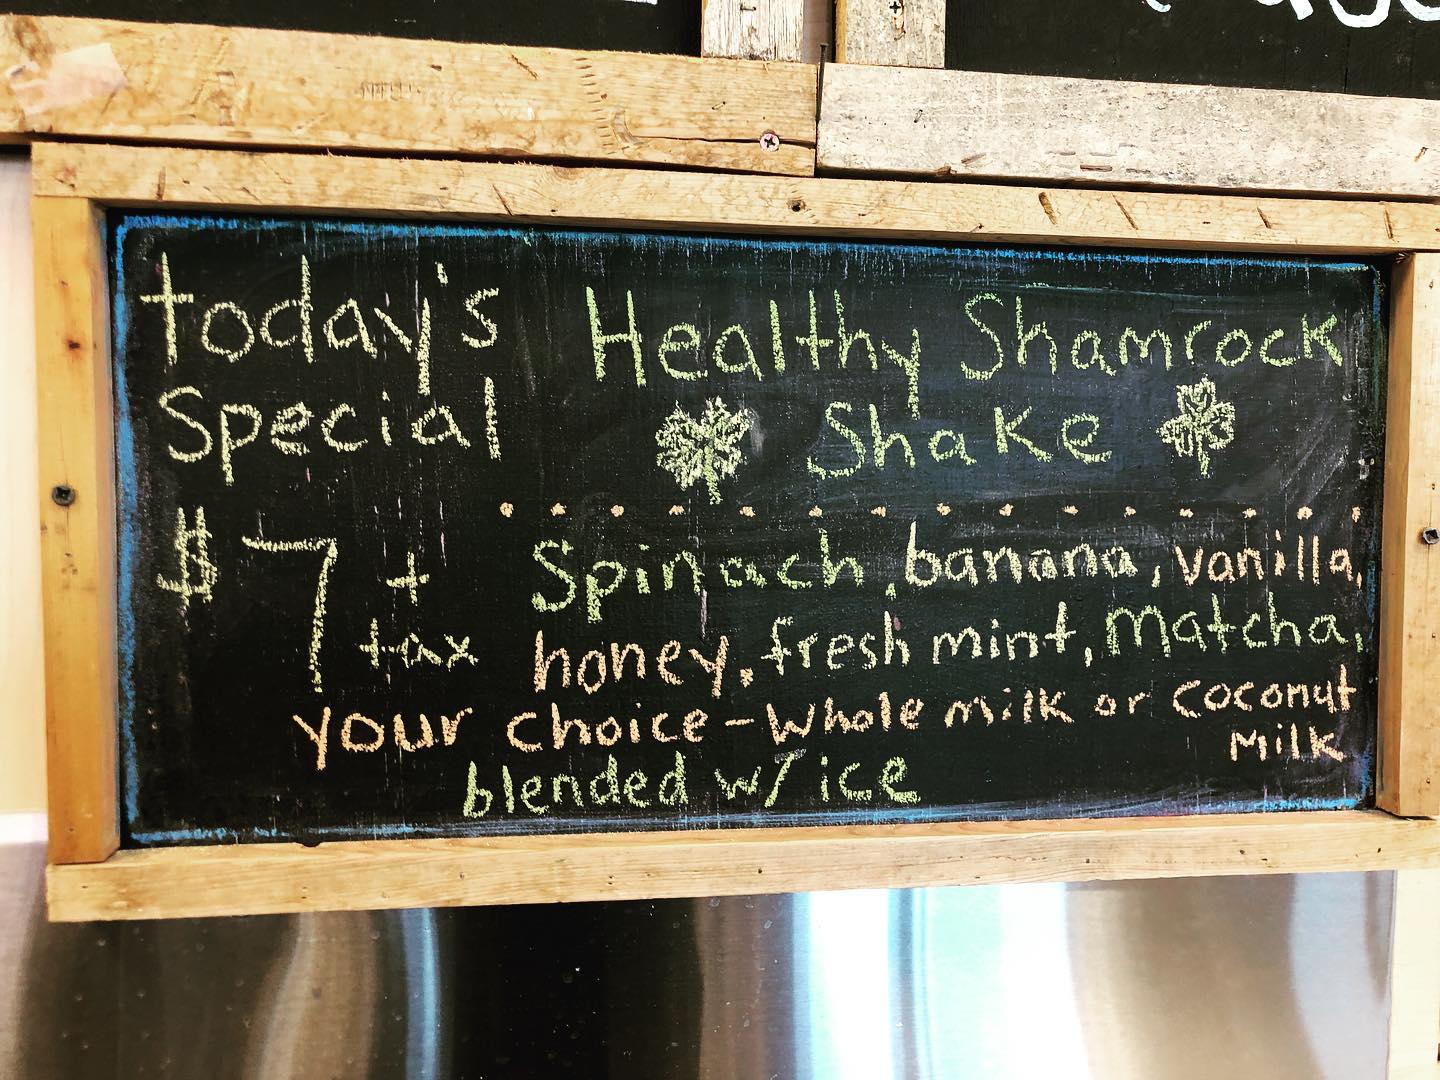 today's
Special
$7 + tax
Healthy Shamrock
Shake
Spinach, banana, vanilla,
honey, fresh mint, Matcha,
your choice - Whole milk or coconut
Milk
blended w/ ice